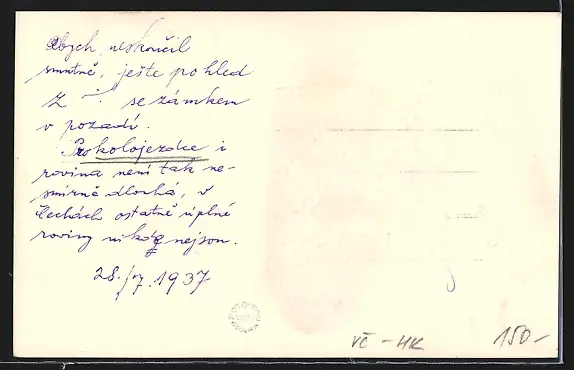 Abych neskončil
smutně, ješte pohled
z se zámkem
v pozadí.
Prokolojezdce i
rovina není tak ne-
smírně dlouhá, v
Čechách ostatně úplné
roviny nikde nejsou.
28./7.1937
VČ - HK
150-